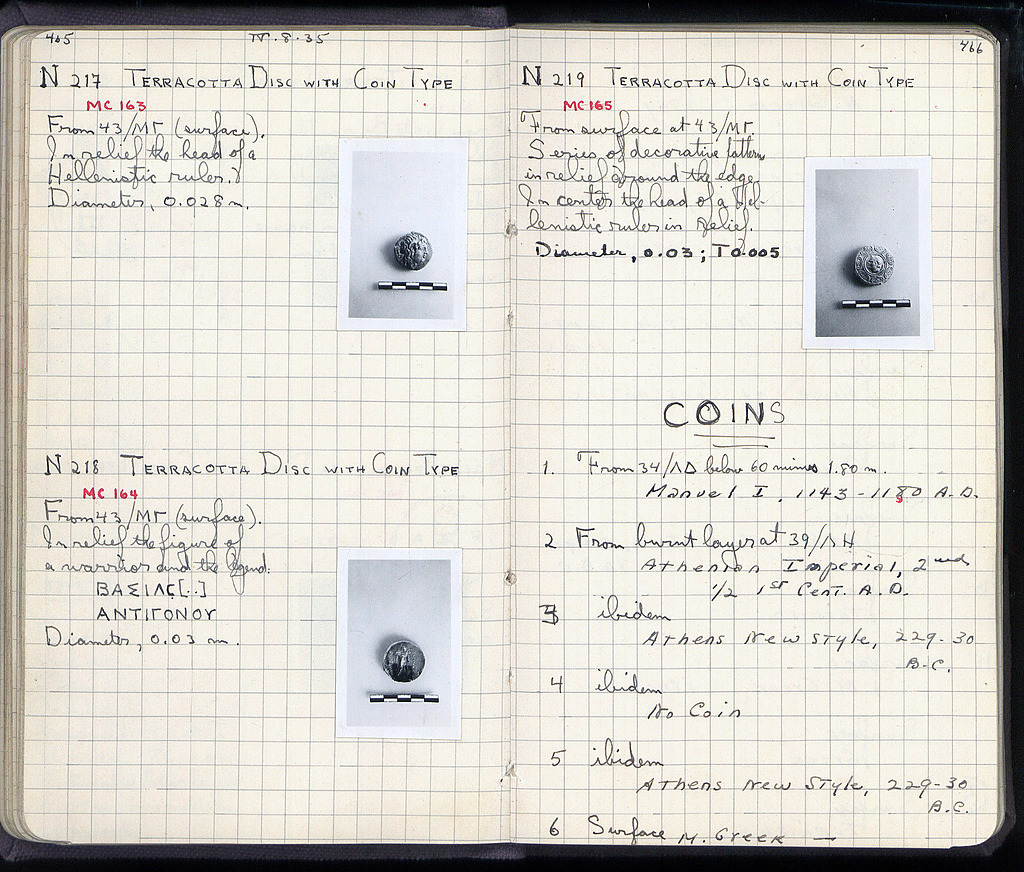 465
IV.8.35
N 217 TERRACOTTA DISC WITH COIN TYPE
MC 163
From 43/ΜΓ (surface).
In relief the head of a
Hellenistic ruler.
Diameter, 0.028 m.
N 218 TERRACOTTA DISC WITH COIN TYPE
MC 164
From 43/ΜΓ (surface).
In relief the figure of
a warrior and the legend:
ΒΑΣΙΛϚ[..]
ΑΝΤΙΓΟΝΟΥ
Diameter, 0.03 m.
466
N 219 TERRACOTTA DISC WITH COIN TYPE
MC 165
From surface at 43/ΜΓ.
Series of decorative pattern
in relief around the edge.
In center the head of a Hel-
lenistic ruler in relief.
Diameter, 0.03; T 0.005
COINS
1. From 34/ΛΔ below 60 minus 1.80 m.
Manuel I, 1143-1180 A.D.
2 From burnt layer at 39/ΛΗ
Athenian Imperial, 2nd
1/2 1st Cent. A.D.
3 ibidem
Athens New Style, 229-30
B.C.
4 ibidem
No Coin
5 ibidem
Athens New Style, 229-30
B.C.
6 Surface M. Greek —